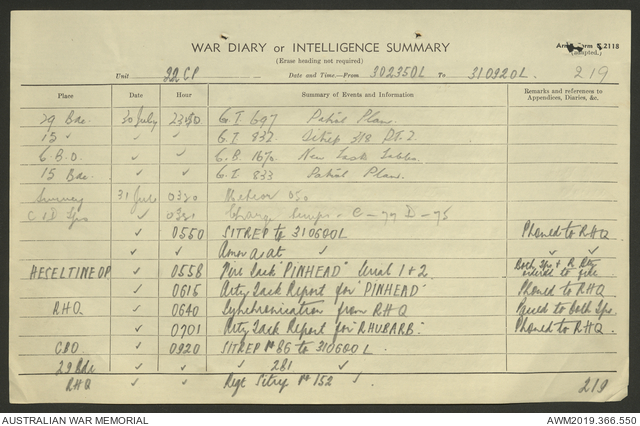 WAR DIARY or INTELLIGENCE SUMMARY
(Erase heading not required)
Army Form C.2118
(adapted.)
Unit 32 CP Date and Time—From 302350L To 310920L. 219
Place Date Hour Summary of Events and Information Remarks and references to Appendices, Diaries, &c.
29 Bde. 30 July 2350 G.T. 697 Patrol Plan.
15 " ✓ ✓ G.T. 832. Sitrep 318 Pt. 2.
C.B.O. ✓ ✓ C.B. 167. New Task Tables.
15 Bde. ✓ ✓ G.T. 833 Patrol Plan.
Survey 31 July 0320 Meteor
C & D Tps ✓ Charge Temps - C - 77 D - 75
✓ 0550 SITREP to 310600L Phoned to RHQ
✓ ✓ Ammo as at ✓ ✓ ✓
HESELTINE OP ✓ 0558 Fire Task "PINHEAD" Serial 1+2. Both Tps & R Rty ordered to fire
✓ 0615 Arty Task Report for "PINHEAD" Phoned to RHQ
RHQ ✓ 0640 Synchronisation from RHQ Passed to both Tps.
✓ 0701 Arty Task Report for "RHUBARB" Phoned to RHQ.
CBO ✓ 0920 SITREP No 86 to 310600L.
29 Bde ✓ ✓ ✓ 281 ✓
RHQ ✓ ✓ Regt Sitrep No 152 ✓ 219
AUSTRALIAN WAR MEMORIAL
AWM2019.366.550